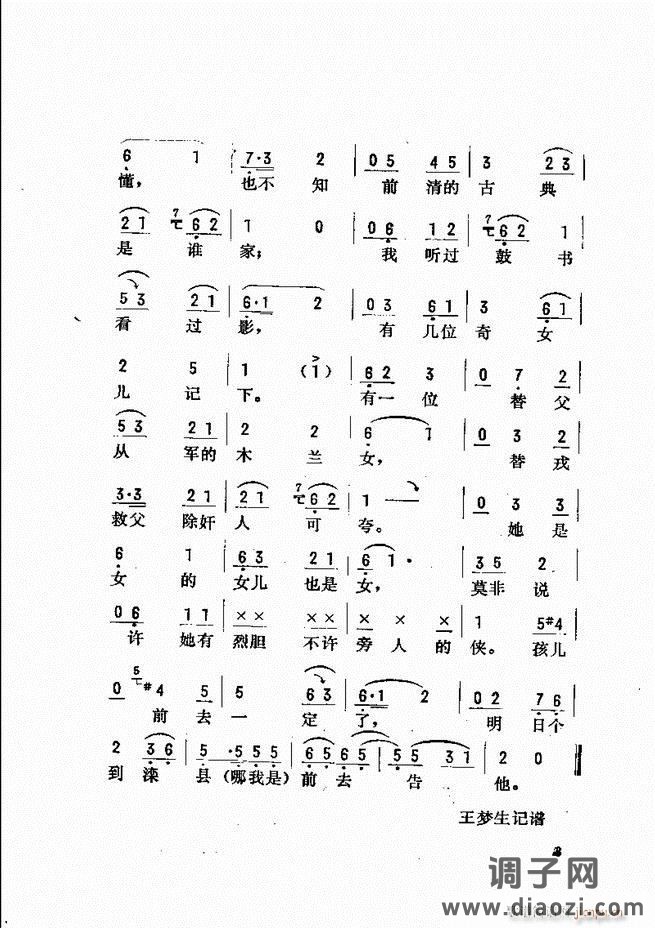 6 1 | 7·3 2 | 0 5 4 5 | 3 2 3
懂， 也不 知 前 清的 古 典
2 1 6 2 | 1 0 | 0 6 1 2 | 6 2 1
是 谁 家； 我 听过 鼓 书
5 3 2 1 | 6·1 2 | 0 3 6 1 | 3 6 1
看 过 影， 有 几位 奇 女
2 5 | 1 (1) | 6 2 3 | 0 7 2
儿 记 下。 有一 位 替 父
5 3 2 1 | 2 2 | 6 1 | 0 3 2
从 军的 木 兰 女， 替 戎
3·3 2 1 | 2 1 6 2 | 1 - | 0 3 3
救父 除奸 人 可 夸。 她 是
6 1 | 6 3 2 1 | 6 1· | 3 5 2
女 的 女儿 也是 女， 莫非 说
0 6 1 1 | × × × × | × × × | 1 5 #4
许 她有 烈胆 不许 旁 人 的 侠。 孩儿
0 #4 5 | 5 6 3 | 6·1 2 | 0 2 7 6
前 去 一 定 了， 明 日个
2 3 6 | 5 ·5 5 5 | 6 5 6 5 | 5 5 3 1 | 2 0
到 滦 县（哪我是）前 去 告 他。
王梦生记谱
调子网
www.diaozi.com